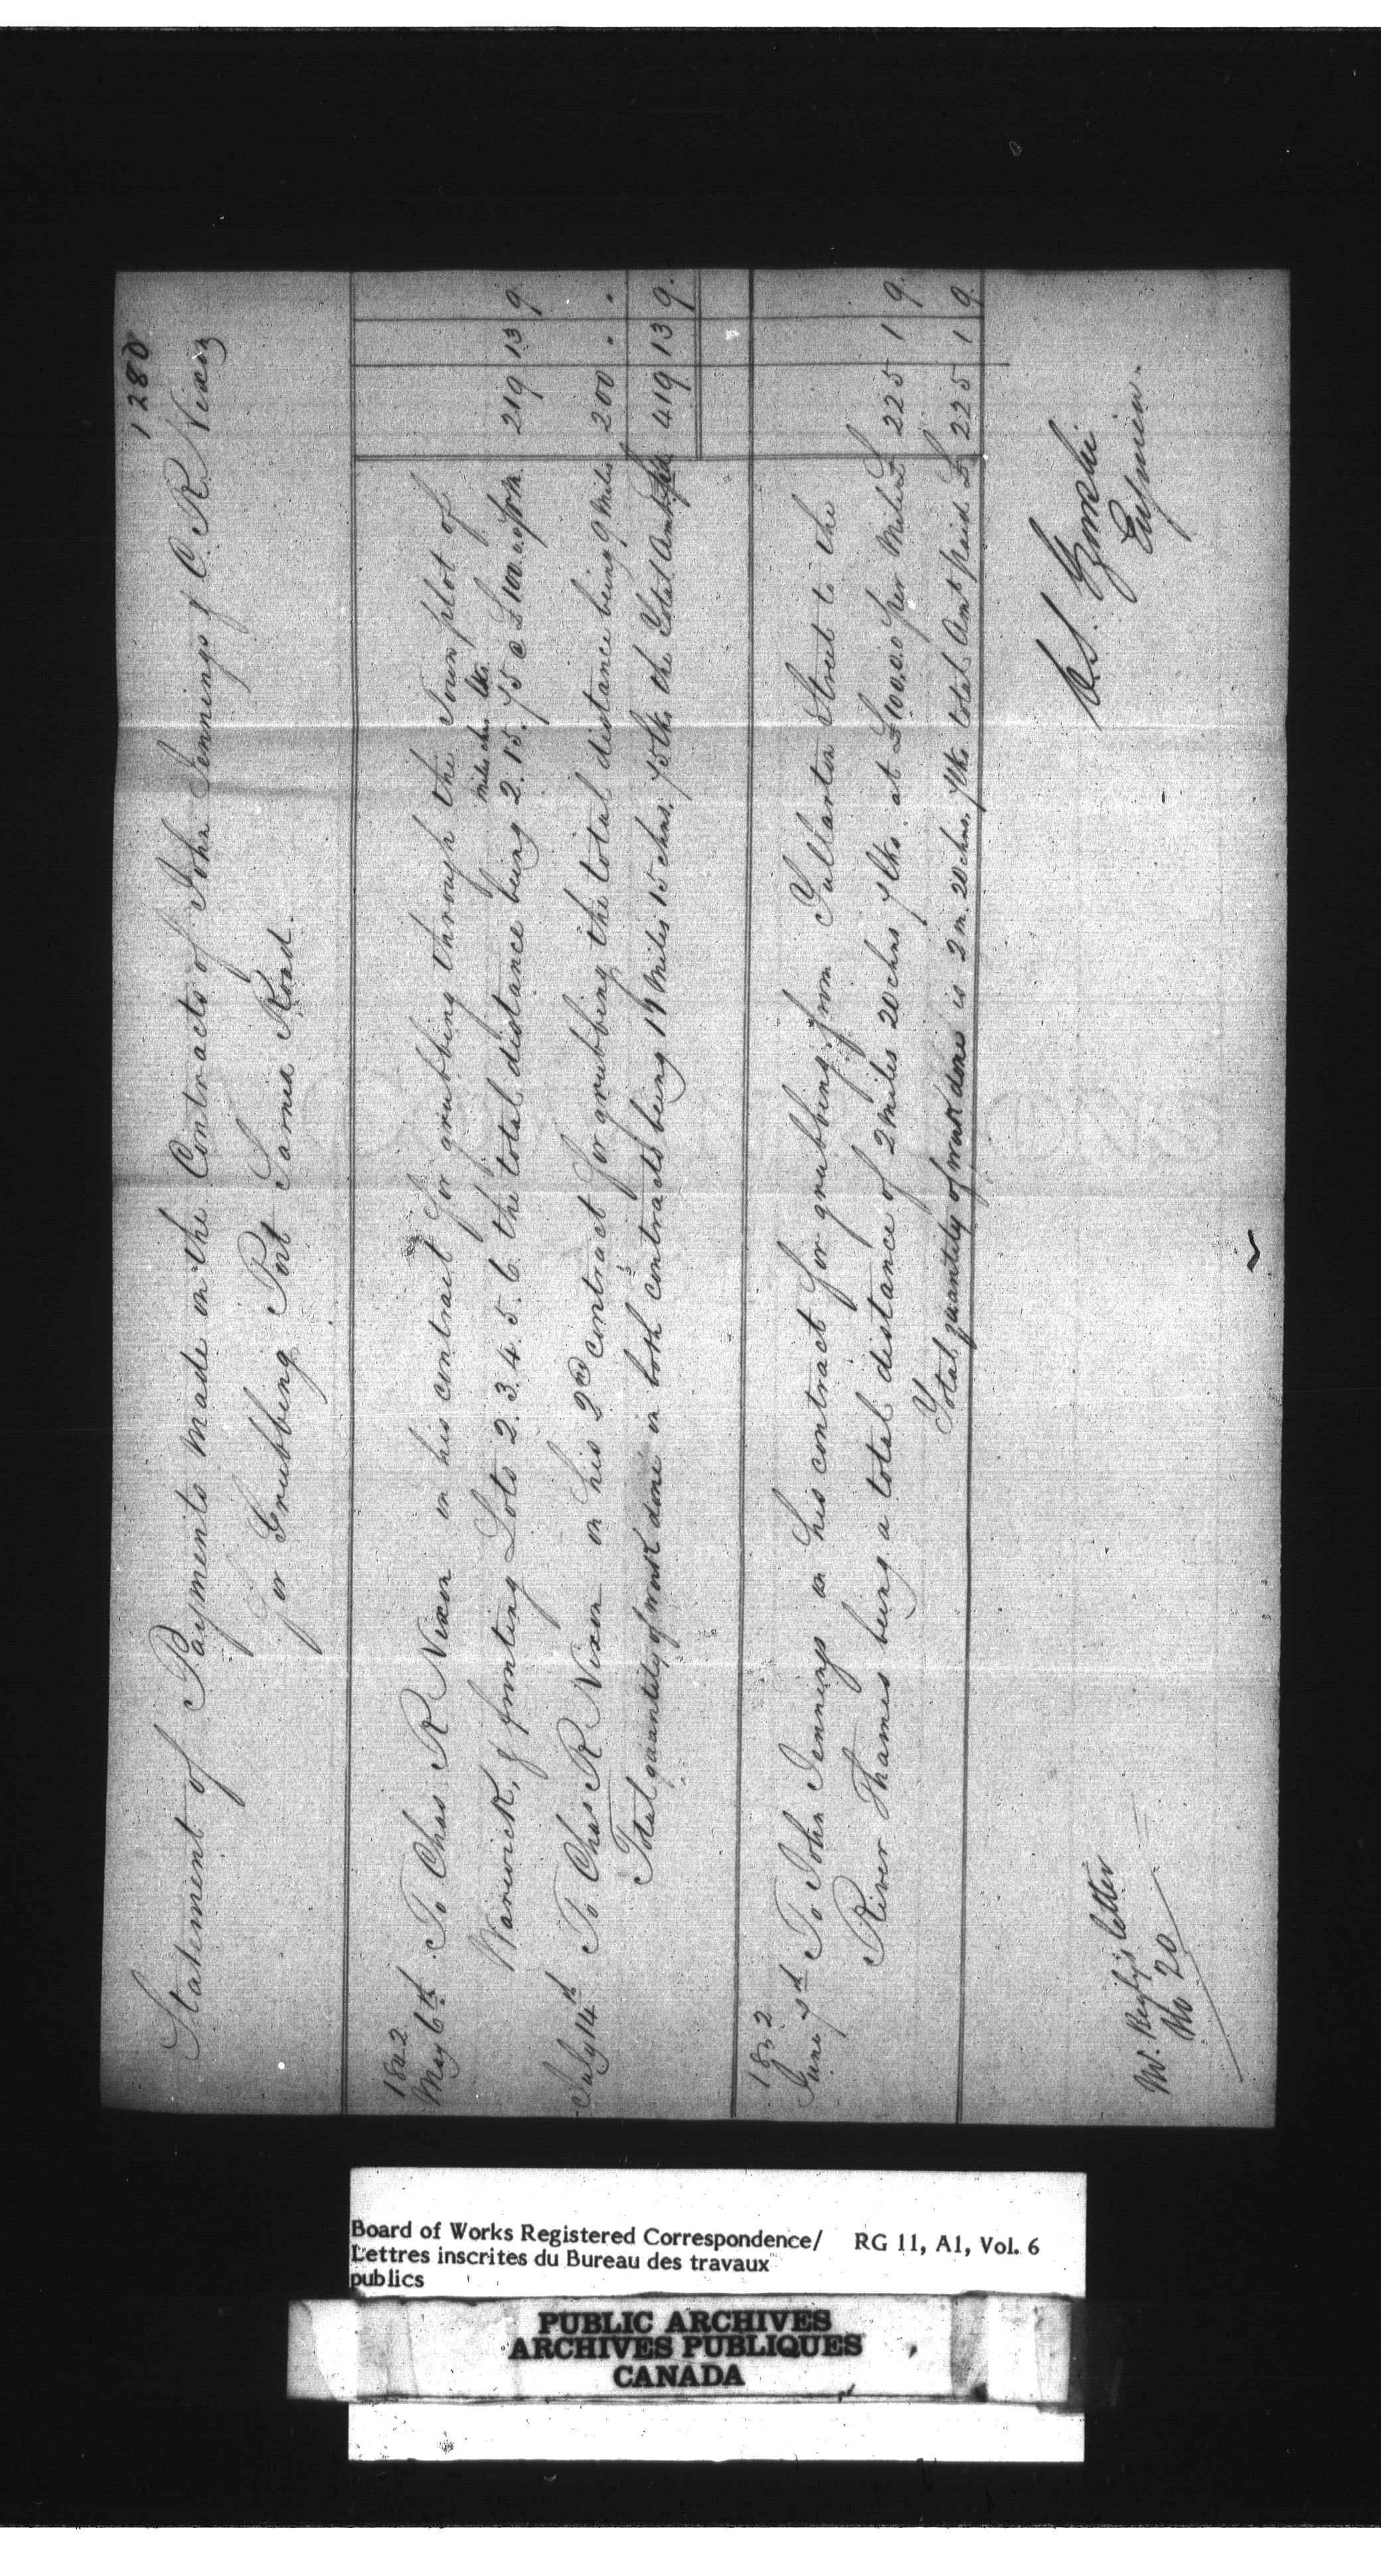 1280
Statement of Payments made on the Contracts of John Jennings & C. R. Nixon
for Grubbing Port Sarnia Road.
1842
May 6th To Chas R Nixon on his contract for grubbing through the Town plot of
miles chs lks.
Warwick, & fronting Lots 2. 3. 4. 5. 6. the total distance being 2. 15. 75 @ £100.0.0 pr M. 219 13 9
July 14th To Chas R Nixon on his 2nd contract for grubbing the total distance being 9 Miles 200 . .
Total quantity of work done in both contracts being 11 Miles 15 chns. 75 lks. the Total Amt. pd. 419 13 9.
1842
June 7th To John Jennings on his contract for grubbing from Fullarton Street to the
River Thames being a total distance of 2 Miles 20 chns 7 lks. at £100.0.0 per Mile £ 225 1 9.
Total quantity of work done is 2 m. 20 chns. 7 lks. total Amt paid £ 225 1 9.
C.S. Gzowski
Engineer.
W. Begly's letter
No 20
Board of Works Registered Correspondence/ RG 11, A1, Vol. 6
Lettres inscrites du Bureau des travaux
publics
PUBLIC ARCHIVES
ARCHIVES PUBLIQUES
CANADA